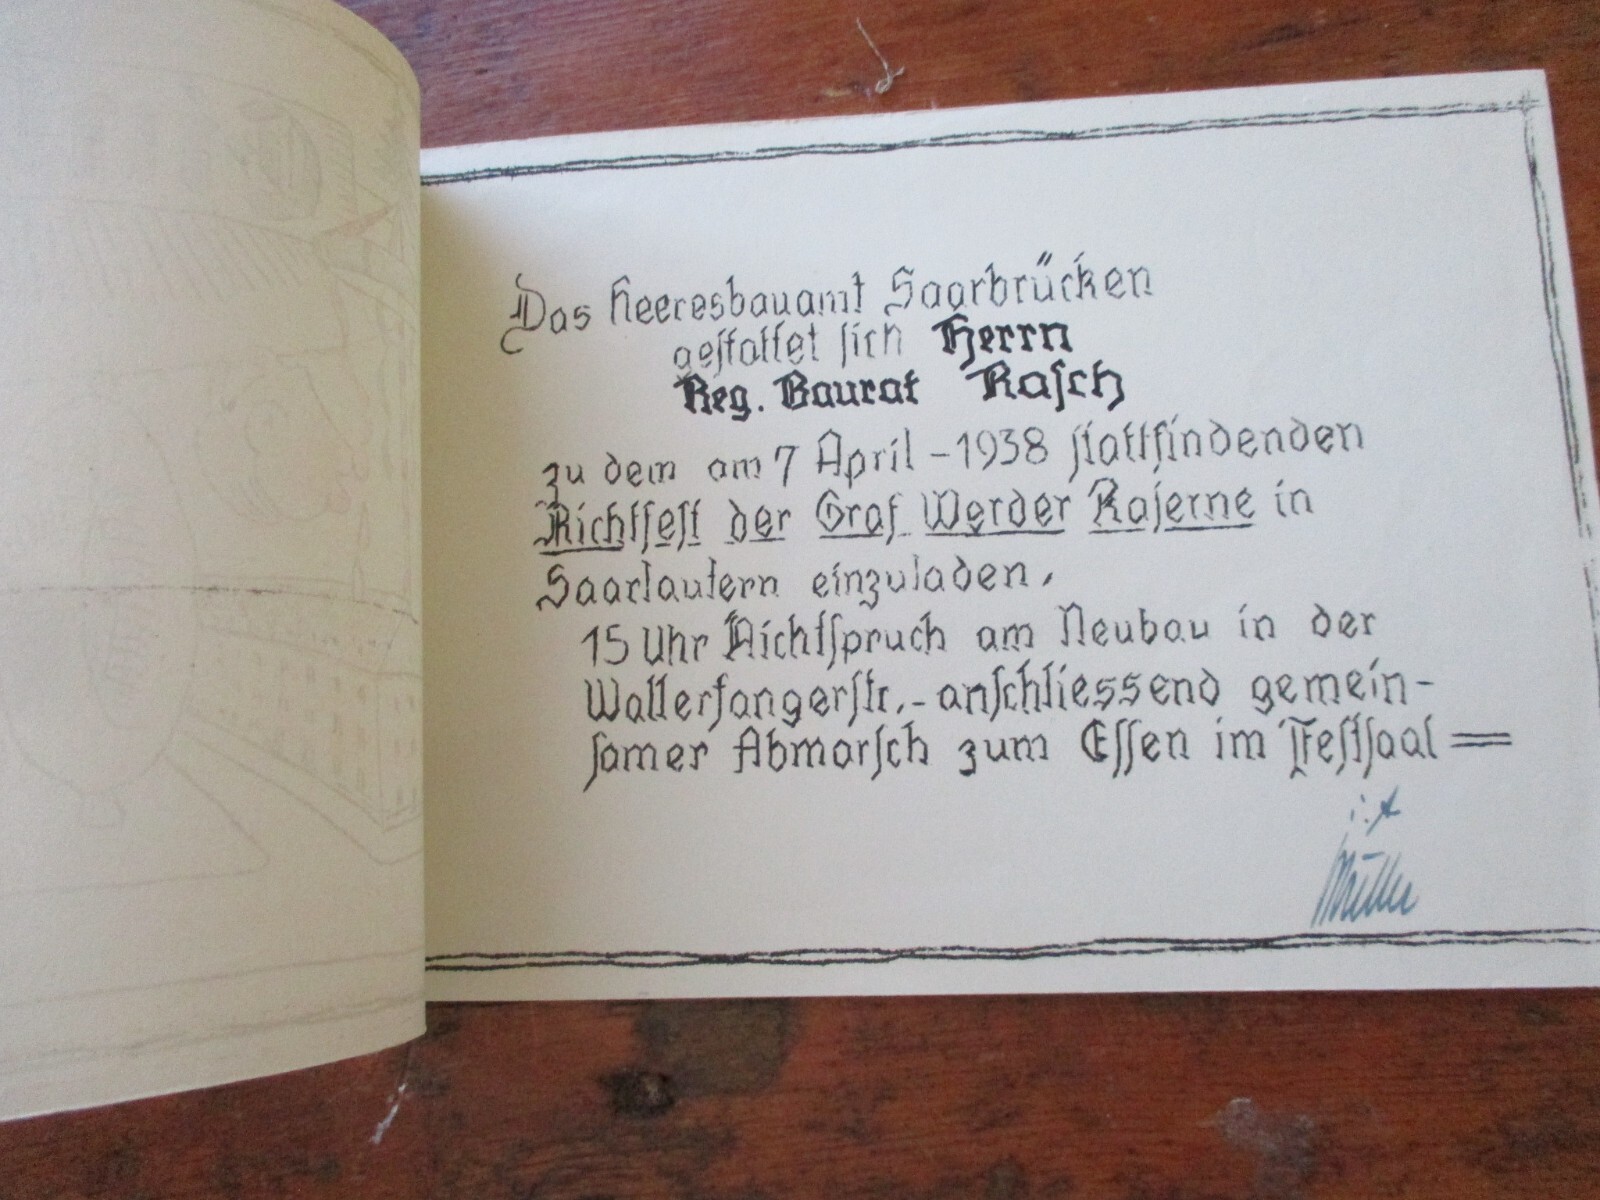 Das Heeresbauamt Saarbrücken
gestattet sich Herrn
Reg. Baurat Rasch
zu dem am 7 April - 1938 stattfindenden
Richtfest der Graf Werder Kaserne in
Saarlautern einzuladen.
15 Uhr Richtspruch am Neubau in der
Wallerfangerstr. - anschliessend gemein-
samer Abmarsch zum Essen im Festsaal =
i. A
Müller